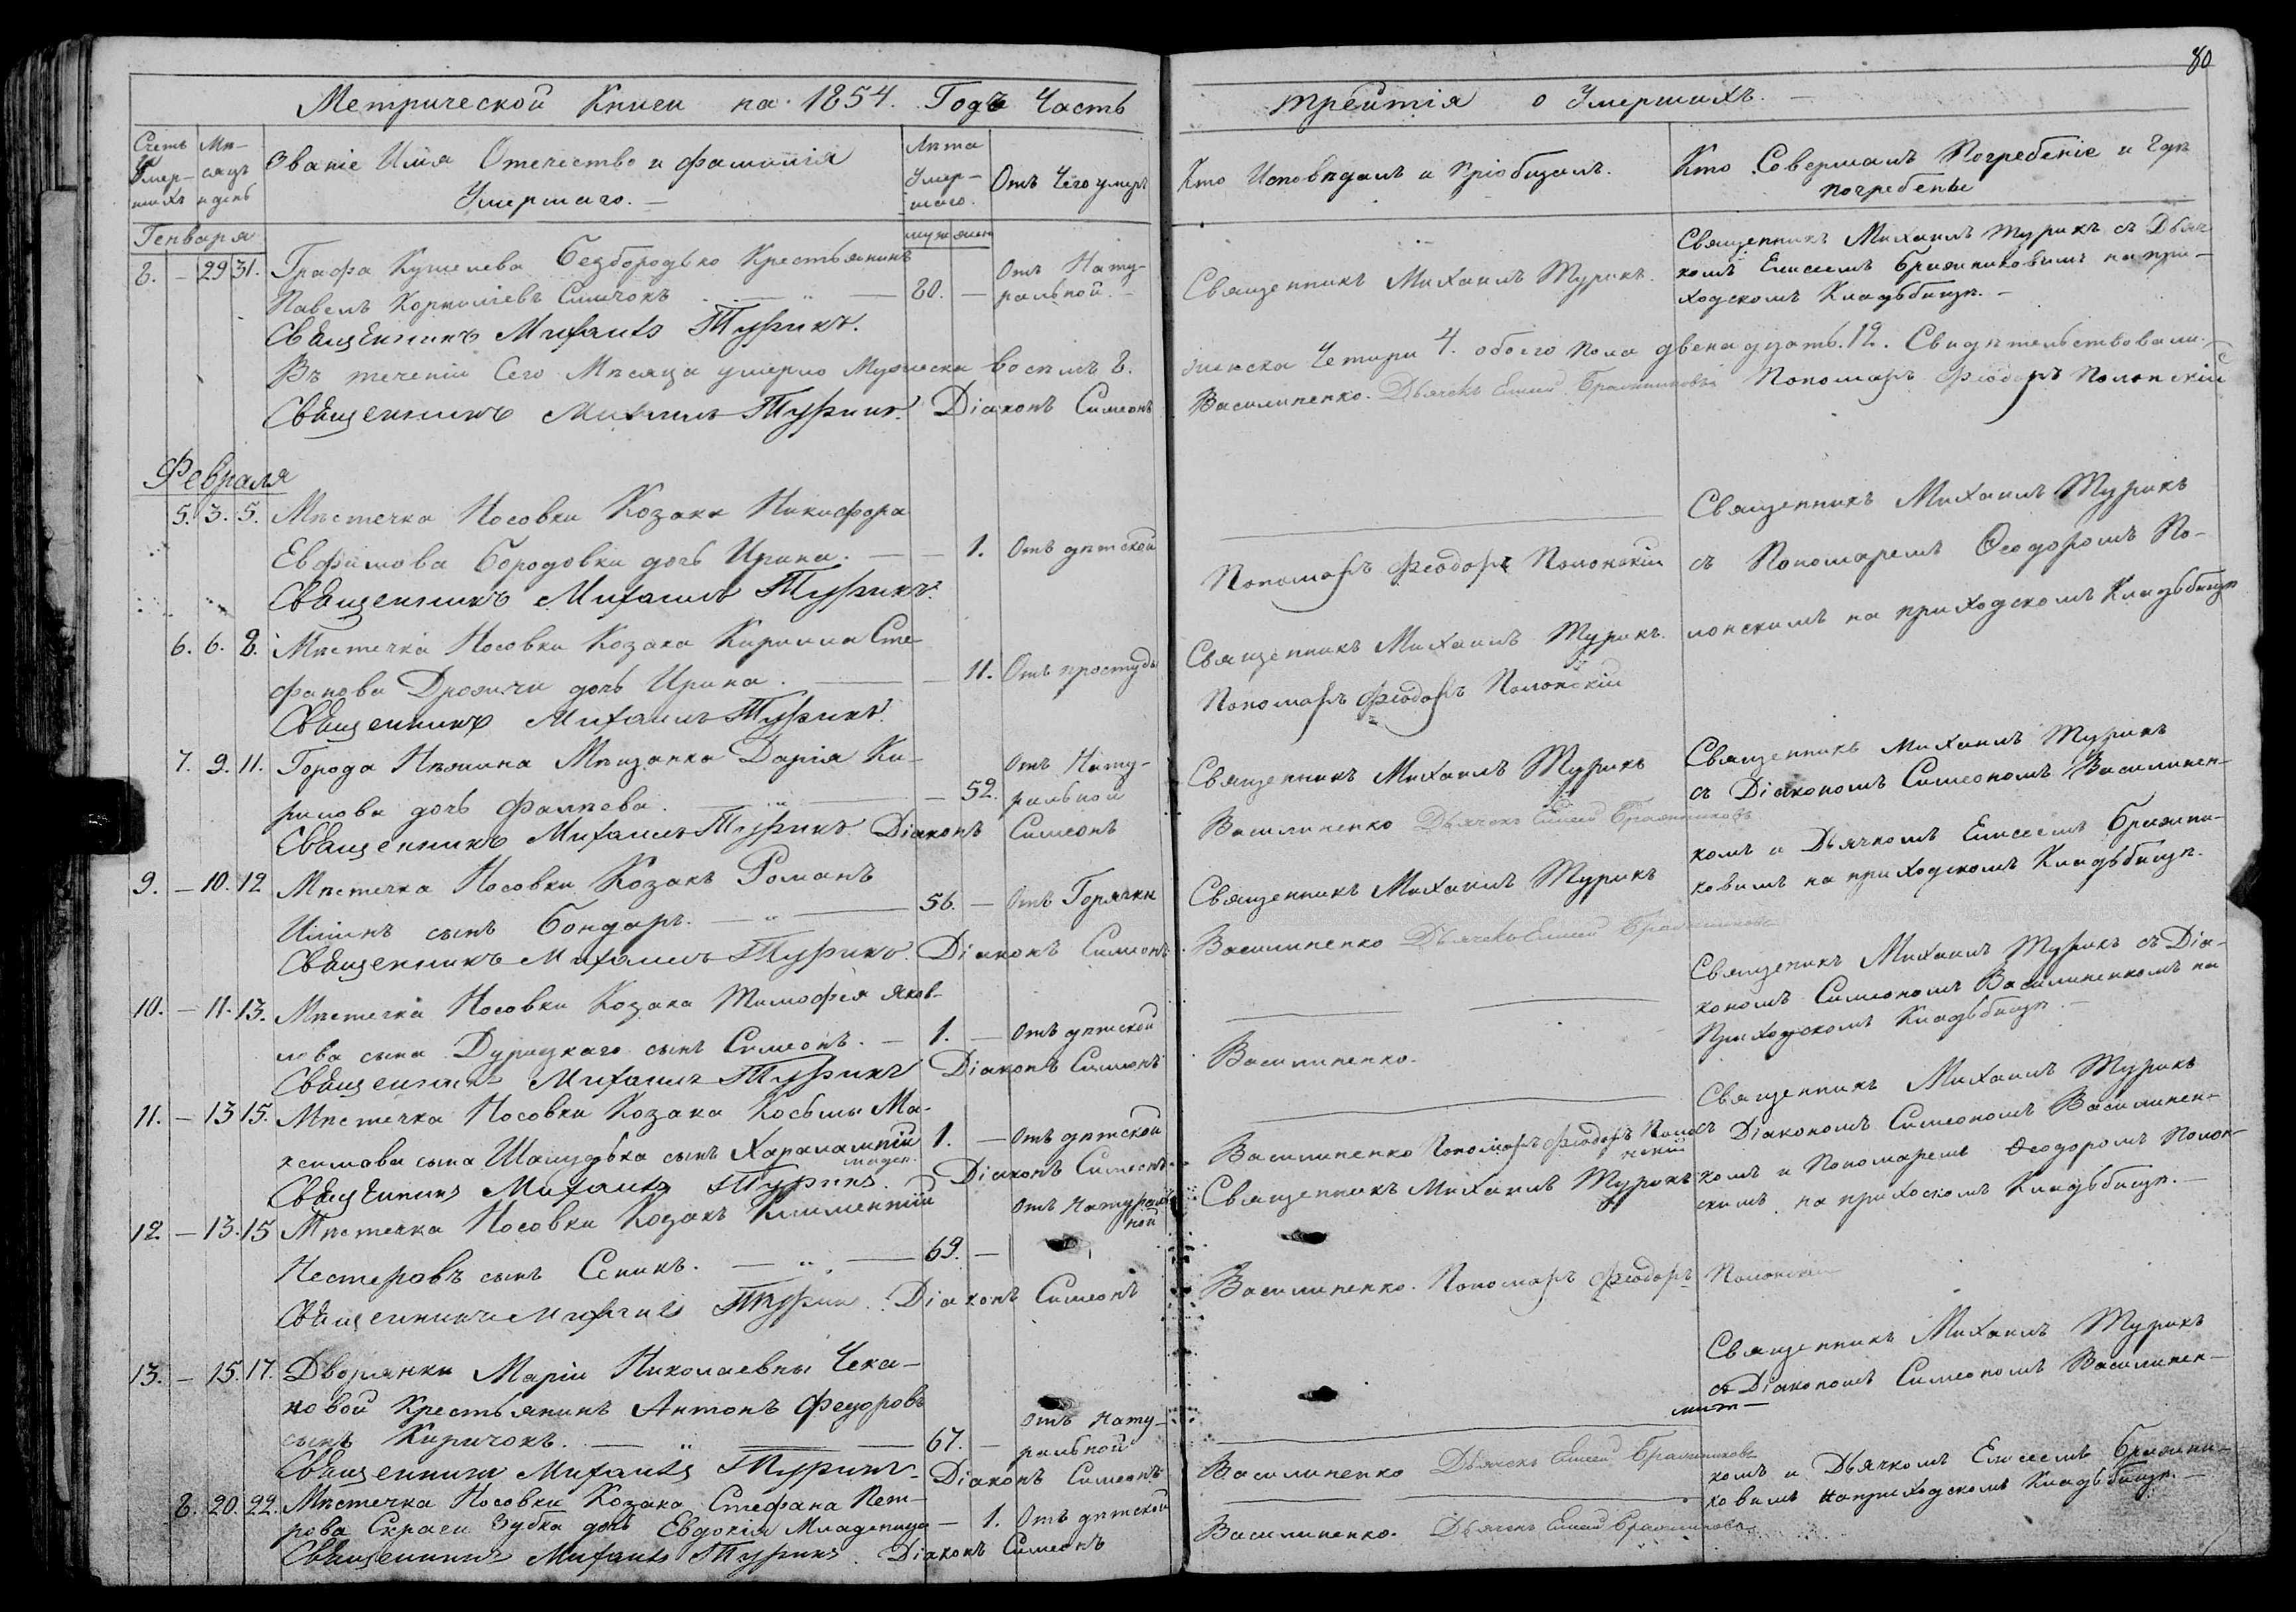 80
Метрической Книги на 1854. Годъ Часть
третія о Умершихъ.
Счетъ Умер-шихъ
Мѣ-сяцъ и день
Званіе Имя Отечество и фамилія
Умершаго.
Лѣта Умер-шаго.
Отъ Чего умеръ
Кто Исповѣдалъ и Пріобщалъ.
Кто Совершалъ Погребеніе и Гдѣ
погребены
Генваря
муж жен
8. – 29 31. Графа Кушелева Безбородько Крестьянинъ
Павелъ Корнилiевъ Симчокъ 80. –
Отъ Нату-
ральной.
Священникъ Михаилъ Турикъ.
Священникъ Михаилъ Турикъ съ Дьяч
комъ Елисеемъ Бражниковимъ на при-
ходскомъ Кладьбищѣ.
Священникъ Михаилъ Турикъ.
Въ теченіи Сего Мѣсяца умерло Мужеска восемъ 8.
женска Четыри 4. обоего пола двенадцать. 12. Свидѣтельствовали.
Священникъ Михаилъ Турикъ. Діаконъ Симеонъ
Василиненко. Дьячекъ Елисей Бражниковъ Пономарь Феодоръ Полонскій
Февраля
5. 3. 5. Мѣстечка Носовки Козака Никифора
Евфимова Бородовки дочь Ирина. – 1. Отъ дѣтской
Священникъ Михаилъ Турикъ.
Пономарь Феодоръ Полонскій
Священникъ Михаилъ Турикъ
съ Пономаремъ Ѳеодоромъ По-
лонскимъ на приходскомъ Кладьбищѣ
6. 6. 8. Мѣстечка Носовки Козака Кирилла Сте-
фанова дочь Ирина. – 11. Отъ простуды
Священникъ Михаилъ Турикъ.
Священникъ Михаилъ Турикъ.
Пономарь Феодоръ Полонскій
7. 9. 11. Города Нѣжина Мѣщанка Дарія Ки-
рилова дочь Фалѣева. – 52.
Отъ Нату-
ральной
Священникъ Михаилъ Турикъ. Діаконъ Симеонъ
Священникъ Михаилъ Турикъ
Василиненко Дьячекъ Елисей Бражниковъ
Священникъ Михаилъ Турикъ
съ Діакономъ Симеономъ Василинен-
комъ и Дьячкомъ Елисеемъ Бражни-
ковимъ на приходскомъ Кладьбищѣ.
9. – 10. 12 Мѣстечка Носовки Козакъ Романъ
сынъ Бондарь. 56. – Отъ Горячки
Священникъ Михаилъ Турикъ. Діаконъ Симеонъ
Священникъ Михаилъ Турикъ
Василиненко Дьячекъ Елисей Бражниковъ
10. – 11. 13. Мѣстечка Носовки Козака Тимофея Яков-
лева сына Дурицкаго сынъ Симеонъ. – 1. – Отъ дѣтской
Священникъ Михаилъ Турикъ Діаконъ Симеонъ
Василиненко.
Священикъ Михаилъ Турикъ съ Діа-
кономъ Симеономъ Василиненкомъ на
Приходскомъ Кладьбищѣ.
11. – 13 15. Мѣстечка Носовки Козака Косьмы Ма-
ксимова сына сынъ Харалампій 1. – Отъ дѣтской
младен.
Священникъ Михаилъ Турикъ. Діаконъ Симеонъ
Василиненко Пономарь Феодоръ Поло
нскій
Священникъ Михаилъ Турикъ
съ Діакономъ Симеономъ Василинен-
комъ и Пономаремъ Ѳеодоромъ Полон-
скимъ на прихоскомъ Кладьбищѣ.
12 – 13. 15 Мѣстечка Носовки Козакъ Климентій
Нестеровъ сынъ Сеникъ. 69. –
Отъ Натураль
ной
Священникъ Михаилъ Турикъ
Священникъ Михаилъ Турикъ. Діаконъ Симеонъ
Василиненко. Пономарь Феодоръ Полонскій
13. – 15. 17. Дворянки Маріи Николаевны Чека-
новой Крестьянинъ Антонъ Федоровъ
сынъ Киричокъ. 67. –
Отъ Нату-
ральной
Священникъ Михаилъ Турикъ. Діаконъ Симеонъ
Василиненко Дьячекъ Елисей Бражниковъ
Священникъ Михаилъ Турикъ
съ Діакономъ Симеономъ Василинен-
комъ и Дьячкомъ Елисеемъ Бражни-
ковимъ на приходскомъ Кладьбищѣ.
8. 20. 22. Мѣстечка Носовки Козака Стефана Пет-
рова Зубка дочь Евдокія Младеница – 1. Отъ дѣтской
Священникъ Михаилъ Турикъ. Діаконъ Симеонъ
Василиненко. Дьячекъ Елисей Бражниковъ